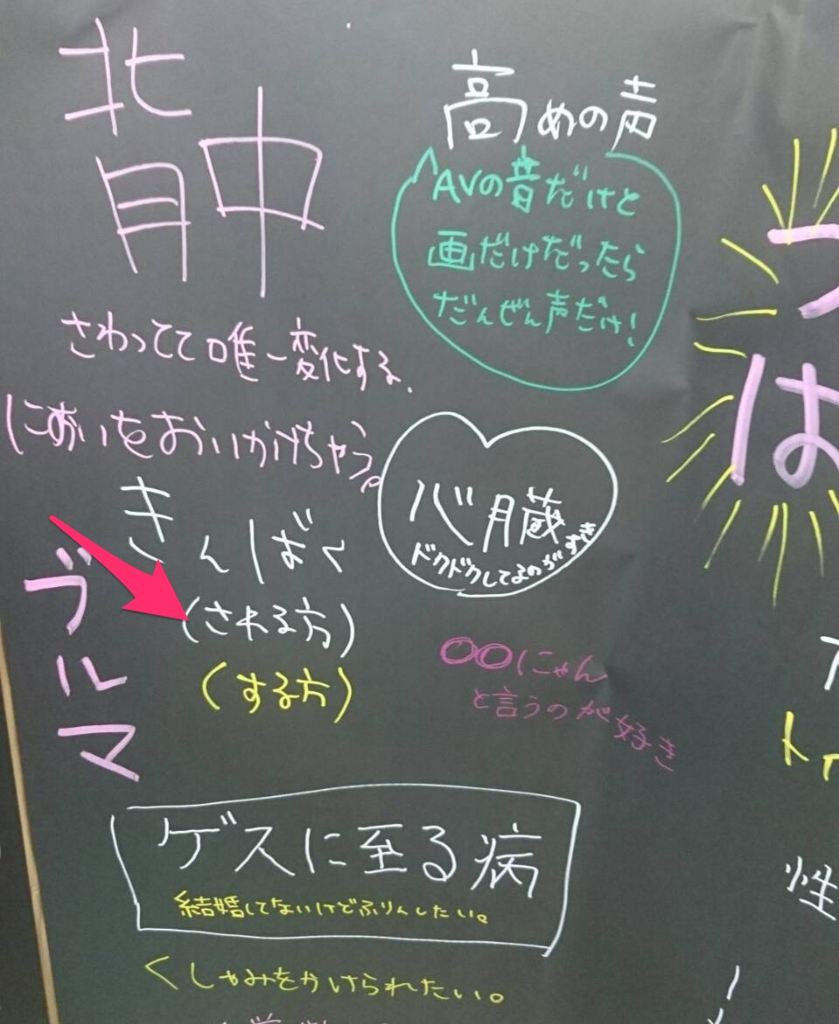 背中
さわってて唯一変化する。
においをおいかけちゃう。
高めの声
AVの音だけと
画だけだったら
だんぜん声だけ!
心臓
ドクドクしてるのがすき
きんばく
(される方)
(する方)
ブルマ
〇〇にゃん
と言うのが好き
ゲスに至る病
結婚してないけどふりんしたい。
くしゃみをかけられたい。
は
性